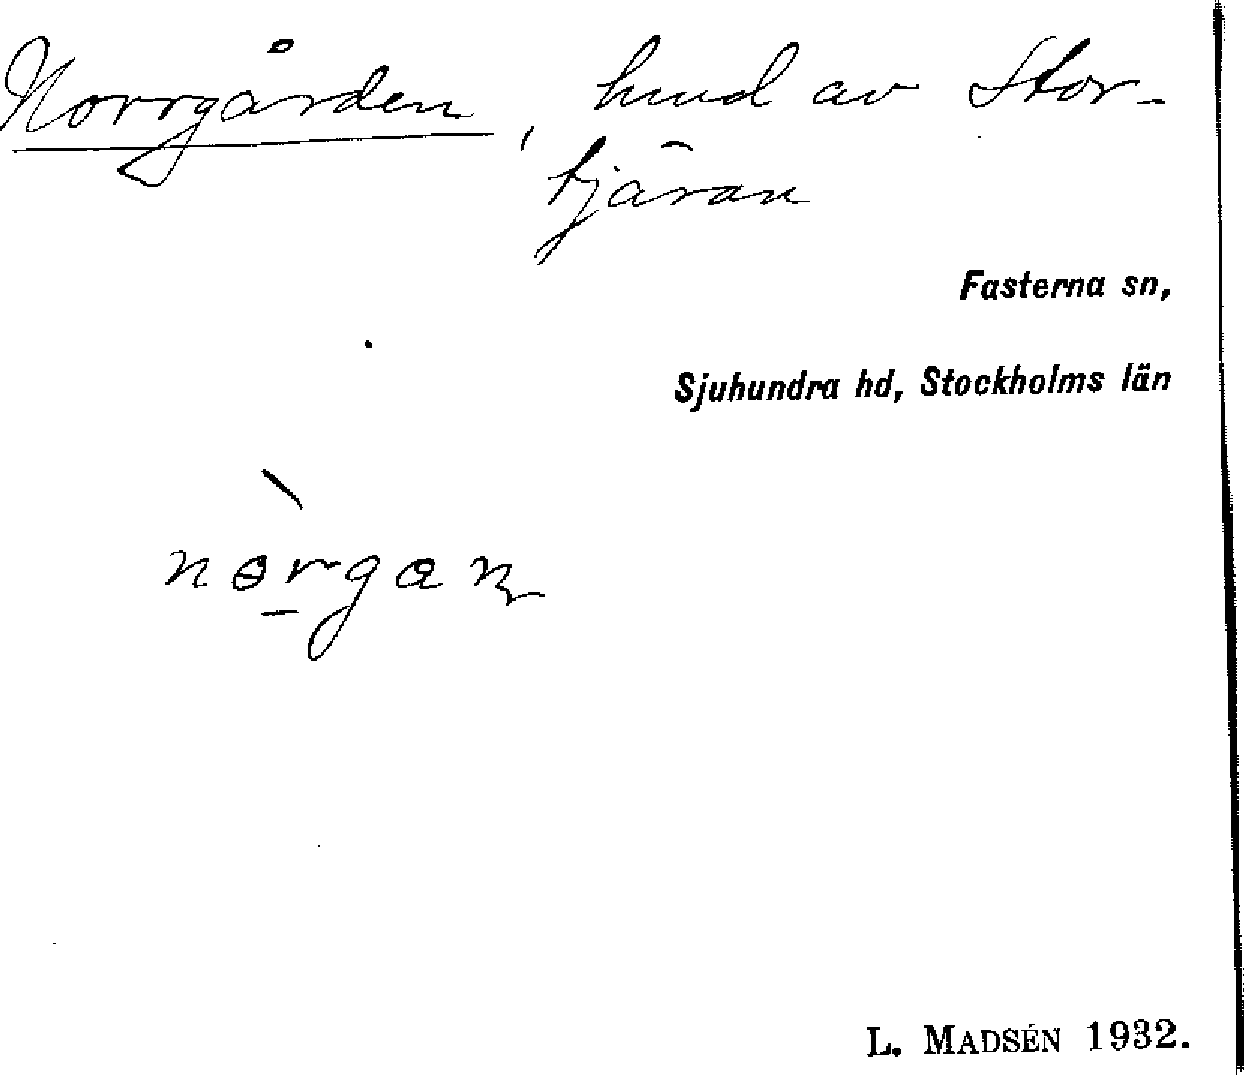 Norrgården, hmd av Stor-
tjäran
Fasterna sn,
Sjuhundra hd, Stockholms län
L. MADSÉN 1932.